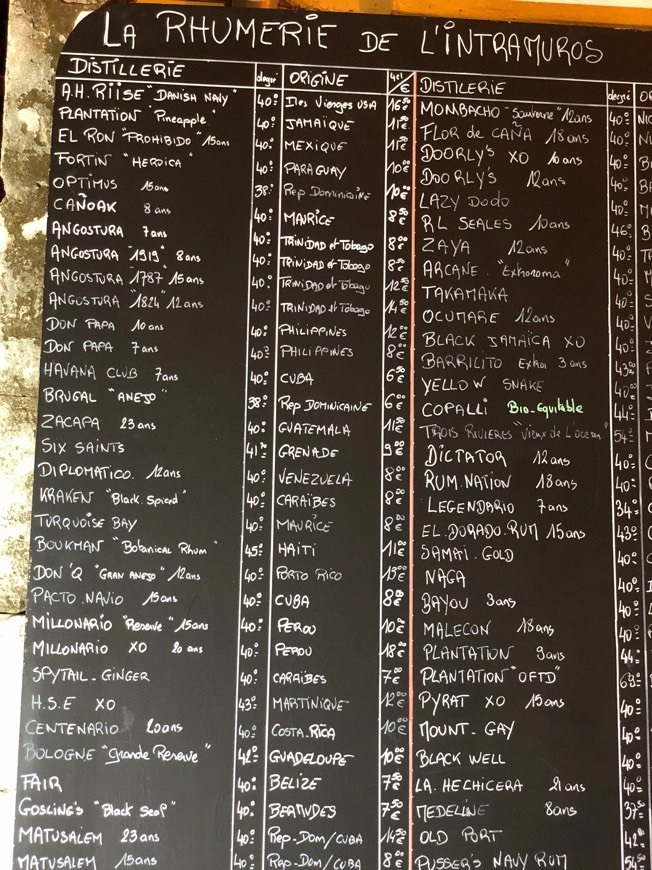 LA RHUMERIE DE L'INTRAMUROS
DISTILLERIE degré ORIGINE 4cl/€
A.H. RIISE "DANISH NAVY" 40° Iles Vierges USA 16
PLANTATION "Pineapple" 40° JAMAÏQUE
EL RON "PROHIBIDO" 15ans 40° MEXIQUE
FORTIN "HEROICA" 40° PARAGUAY 10
OPTIMUS 15ans 38° Rep Dominicaine 10
CAÑOAK 8 ans 40° MAURICE 8
ANGOSTURA 7ans 40° TRINIDAD et Tobago 8
ANGOSTURA "1919" 8ans 40° TRINIDAD et Tobago 8
ANGOSTURA "1787" 15ans 40° TRINIDAD et Tobago 12
ANGOSTURA "1824" 12ans 40° TRINIDAD et Tobago 14
DON PAPA 10ans 40° PHILIPPINES 12
DON PAPA 7ans 40° PHILIPPINES 8
HAVANA CLUB 7ans 40° CUBA 6
BRUGAL "ANEJO" 38° Rep DOMINICAINE 6
ZACAPA 23ans 40° GUATEMALA 11
SIX SAINTS 41° GRENADE 9
DIPLOMATICO. 12ans 40° VENEZUELA 8
KRAKEN "Black. Spiced" 40° CARAÏBES 8
TURQUOISE BAY 40° MAURICE 8
BOUKMAN "Botanical Rhum" 45° HAITI 11
DON'Q "GRAN ANEJO" 12ans 40° PORTO RICO
PACTO.NAVIO 15ans 40° CUBA 8
MILLONARIO "Reserve" 15ans 40° PEROU 10
MILLONARIO XO 20ans 40° PEROU 18
SPYTAIL-GINGER 40° CARAÏBES 7
H.S.E XO 43° MARTINIQUE 12
CENTENARIO 20ans 40° COSTA.RICA 10
BOLOGNE "Grande Reserve" 42° GUADELOUPE 10
FAIR 40° BELIZE 7
GOSLING'S "Black Seal" 40° BERMUDES 7
MATUSALEM 23ans 40° Rep-Dom/CUBA 14
MATUSALEM 15ans 40° Rep-Dom/CUBA 8
DISTILERIE degré
MOMBACHO "Sauternne" 12ans 40°
FLOR de CAÑA 18ans 40°
DOORLY'S XO 40°
DOORLY'S 12ans 40°
LAZY DODO 40°
RL SEALES 10ans 46°
ZAYA 12ans 40°
ARCANE. "Extraroma" 40°
TAKAMAKA 40°
OCUMARE 12ans 40°
BLACK JAMAÏCA XO 40°
BARRILITO Extra 3ans 43°
YELLOW SNAKE 40°
COPALLI Bio-Equitable 44°
TROIS RIVIERES "Vieux de L'ocean" 54°
DICTATOR 12ans 40°
RUM.NATION 18ans 40°
LEGENDARIO 7ans 34°
EL.DORADO.RUM 15ans 43°
SAMAI.GOLD 40°
NAGA 40°
BAYOU 3ans 40°
MALECON 18ans 40°
PLANTATION 9ans 44°
PLANTATION "OFTD" 69°
PYRAT XO 15ans 40°
MOUNT-GAY 40°
BLACK WELL 40°
LA.HECHICERA 21ans 40°
MEDELINE 8ans
OLD PORT 42°
PUSSER'S NAVY RUM